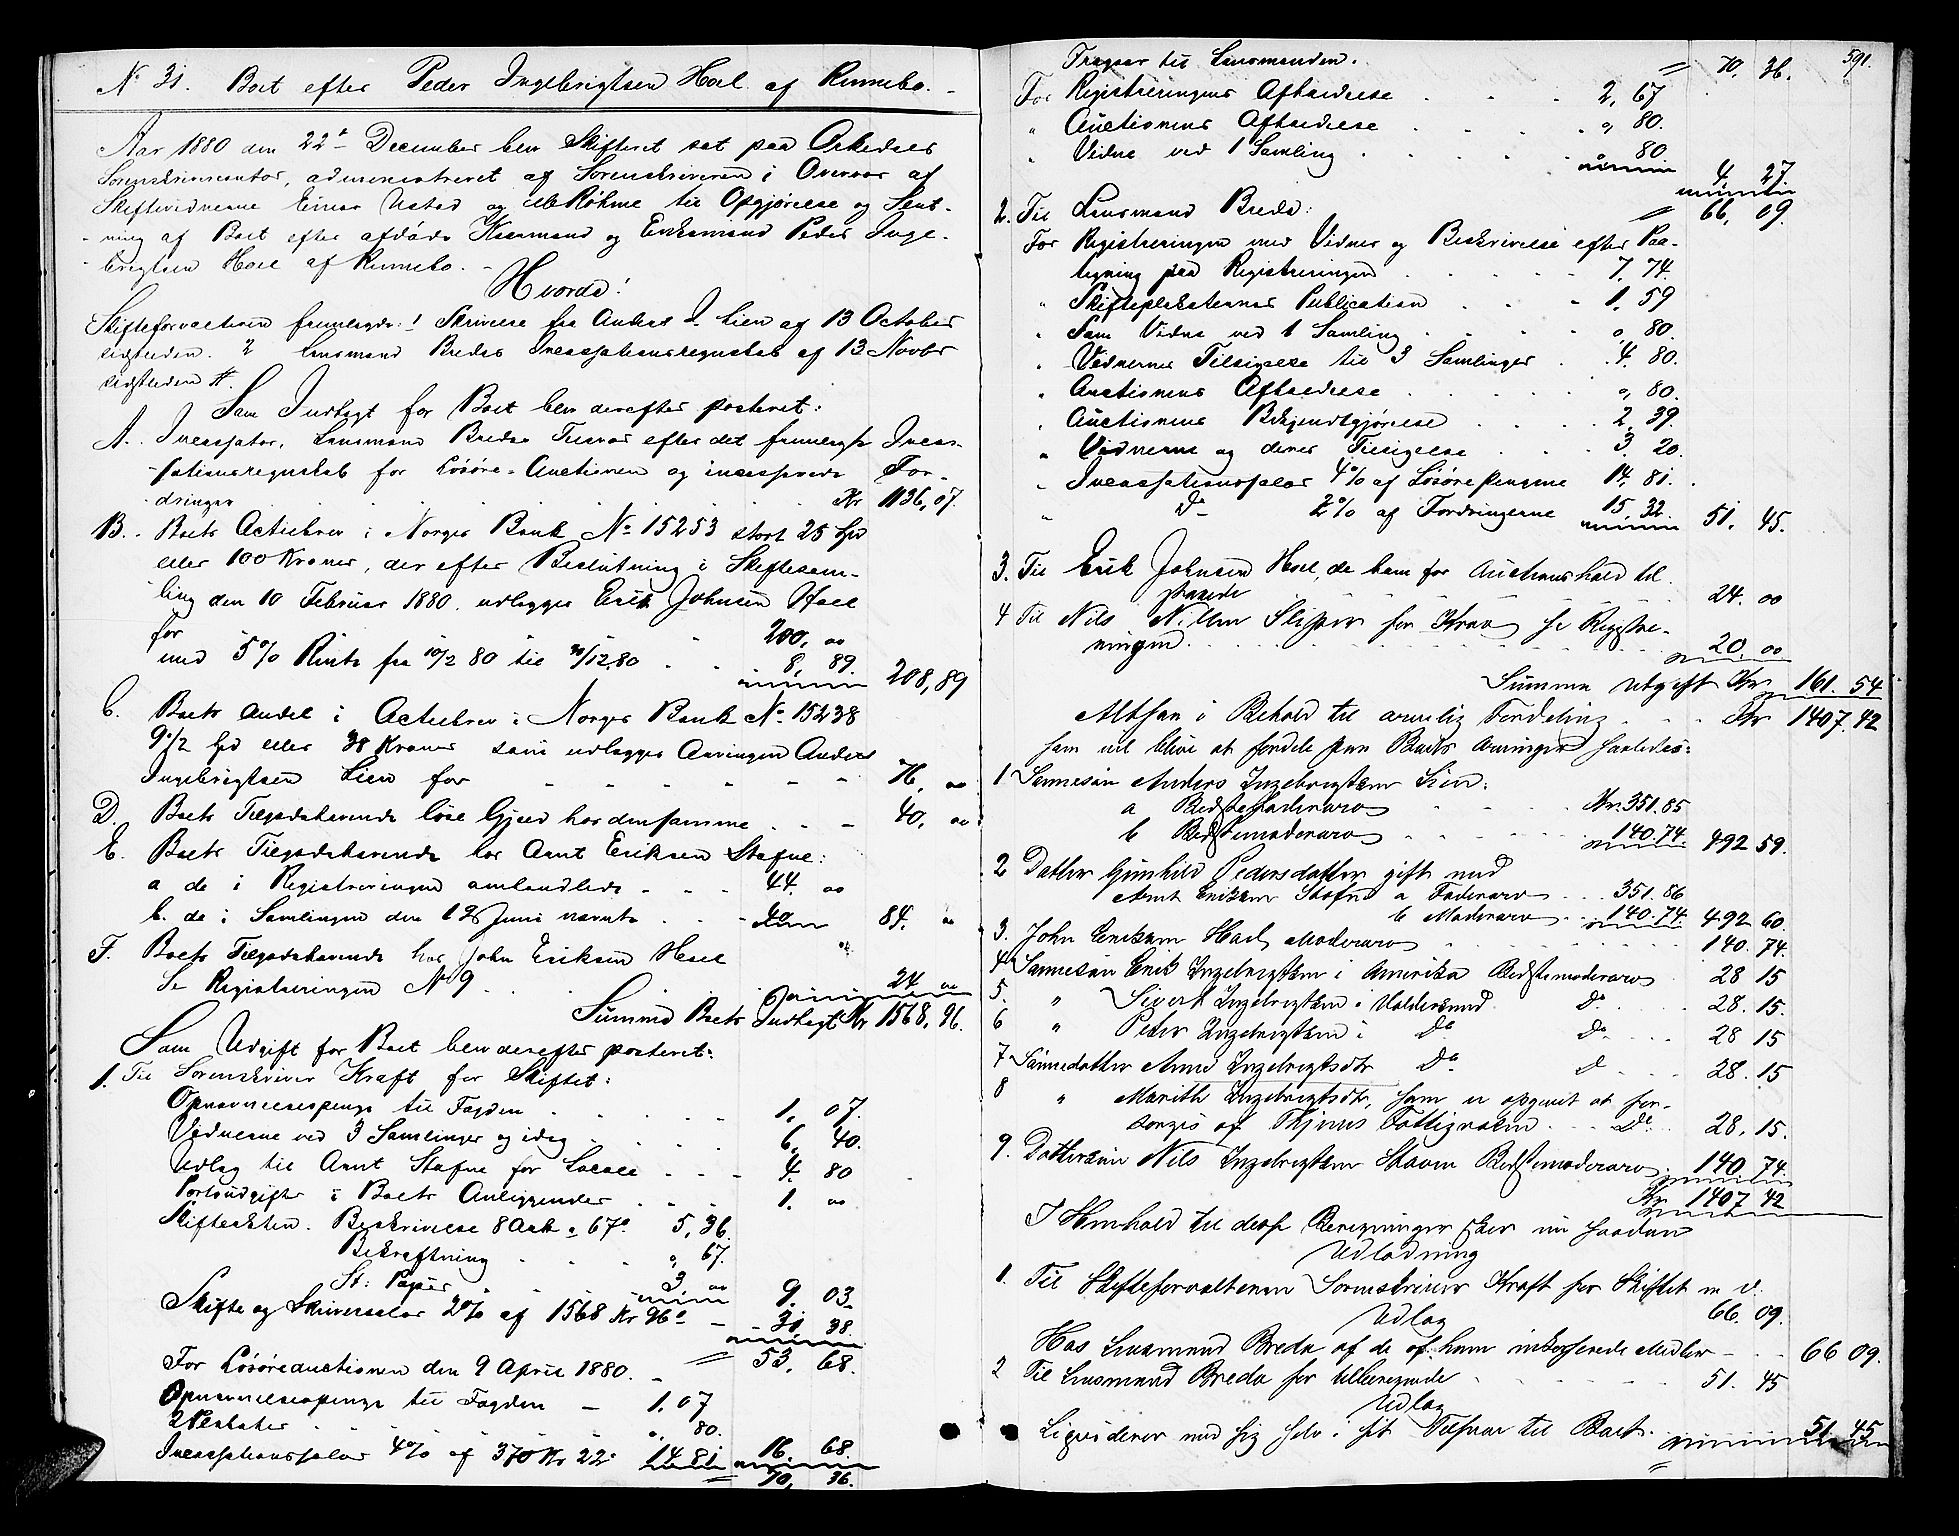 No 31. Boet efter Peder Ingebrigtsen Hoel af Rennebo.
Aar 1880 den 22de December blev Skifteret sat paa Orkedals
Sorenskrivercontor, administreret af Sorenskriveren i Overvær af
Skiftevidnerne Einar Ustad og Røhme til Opgjørelse og Slut-
ning af Boet efter afdøde Kaarmand og Enkemand Peder Inge-
brigtsen Hoel af Rennebo.
Hvorda!
Skifteforvalteren fremlagde: 1 Skrivelse fra Anders I. Lien af 13 October
sidstleden. 2 Lensmand Bredes Incassationsregnskab af 13 Novbr
sidstleden #.
Som Indtægt for Boet blev derefter posteret:
A. Incassator, Lensmand Bredes Tilsvar efter det fremlagte Incas-
sationsregnskab for Løsøre-Auctionen og incasserede For-
dringer Kr 1136,07.
B. Boets Actiebrev i Norges Bank No 15253 stort 25 Spd
eller 100 Kroner, der efter Beslutning i Skiftesam-
ling den 10 Februar 1880 udlægges Erik Johnsen Hoel
for 200, 00
med 5 % Rente fra 10/2 80 til 31/12 80 8, 89. 208,89
C. Boets Andel i Actiebrev i Norges Bank No 15238
9 1/2 Spd eller 38 Kroner som udlægges Arvingen Anders
Ingebrigtsen Lien for 76, 00
D. Boets Tilgodehavende løse Gjæld hos densamme 40, 00
E. Boets Tilgodehavende hos Arnt Eriksen Stafne:
a de i Registreringen omhandlede 44. 00
b. de i Samlingen den 12 Juni nævnte 40 84. 00
F. Boets Tilgodehavende hos John Eriksen Hoel
Se Registreringen No 9 24 00
Summa Boets Indtægt Kr 1568,96.
Som Udgift for Boet blev derefter posteret:
1. Til Sorenskriver Kraft for Skiftet:
Opnævnelsespenge til Fogden 1, 07.
Vidnerne ved 3 Samlinger og idag 6, 40.
Udlæg til Arnt Stafne for Locale 4. 80
Portoudgifter i Boets Anliggender 1. 00
Skifteakten. Beskrivelse 8 Ark a 67 ø 5, 36.
Bekræftning 0, 67.
St: Papir 3 00 9. 03.
Skifte og Skriversalær 2% af 1568 Kr 96 ø 31 38.
53, 68.
For Løsøreauctionen den 9 April 1880.
Opnævnelsespenge til Fogden 1.07
2 Plakater 0, 80.
Incassationssalær 4% af 370 Kr 22 ø 14 81 16. 68.
70, 36.
591.
Transp. til Lensmanden. 70, 36.
For Registreringens Afholdelse 2, 67
" Auctionens Afholdelse 0, 80.
" Vidne ved 1 Samling 80
4, 27
66, 09.
2. Til Lensmand Brede:
For Registreringen med Vidner og Beskrivelse efter Paa-
tegning paa Registreringen 7. 74.
" Skifteplakaternes Publication 1. 59
" Som Vidne ved 1 Samling 0, 80.
" Vidnernes Tilsigelse til 3 Samlinger 4. 80.
" Auctionens Afholdelse 0, 80.
" Auctionens Bekjendtgjørelse 2, 39.
" Vidnerne og deres Tilsigelse 3. 20.
" Incassationssalær 4% af Løsørepengene 14, 81.
" Do 2% af Fordringerne 15, 32. 51, 45.
3. Til Erik Johnsen Hoel, de ham for Auctionshold til-
staaede 24. 00
4 Til Nils Nilsen Slipper for Krav se Registre-
ringen 20. 00
Summa Udgift Kr 161. 54
Altsaa i Behold til arvelig Fordeling Kr 1407.42
som vil blive at fordele paa Boets Arvinger saaledes:
1 Sønnesøn Anders Ingebrigtsen Lien:
a Bedstefaderarv Kr. 351.85
b Bedstemoderarv 140.74. 492 59.
2 Datter Gunhild Pedersdatter gift med
Arnt Eriksen Stafne a Faderarv 351.86
b Moderarv 140.74. 492 60.
3. John Eriksen Hoel Moderarv 140.74.
4 Sønnesøn Erik Ingebrigtsen i Amerika Bedstemoderarv 28 15
5. " Sivert Ingebrigtsen i Haldersund Do 28. 15.
6 " Peder Ingebrigtsen i Do Do 28 15
7 Sønnedatter Anne Ingebrigtsdtr Do Do 28. 15
8 " Marith Ingebrigtsdtr, som er opgivet at for-
sørges af Fattigvæsen Do 28. 15.
9. Dattersøn Nils Ingebrigtsen Bedstemoderarv 140. 74.
Kr 1407 42
I Henhold til disse Beregninger skeer nu saadan
Udlodning
1. Til Skifteforvalteren Sorenskriver Kraft for Skiftet m v: 66. 09.
Udlæg
Hos Lensmand Brede af de af ham inkasserede Midler 66 09.
2 Til Lensmand Brede for tilberegnede 51. 45
Udlæg
Liqviderer med sig selv i sit Tilsvar til Boet. 51 45